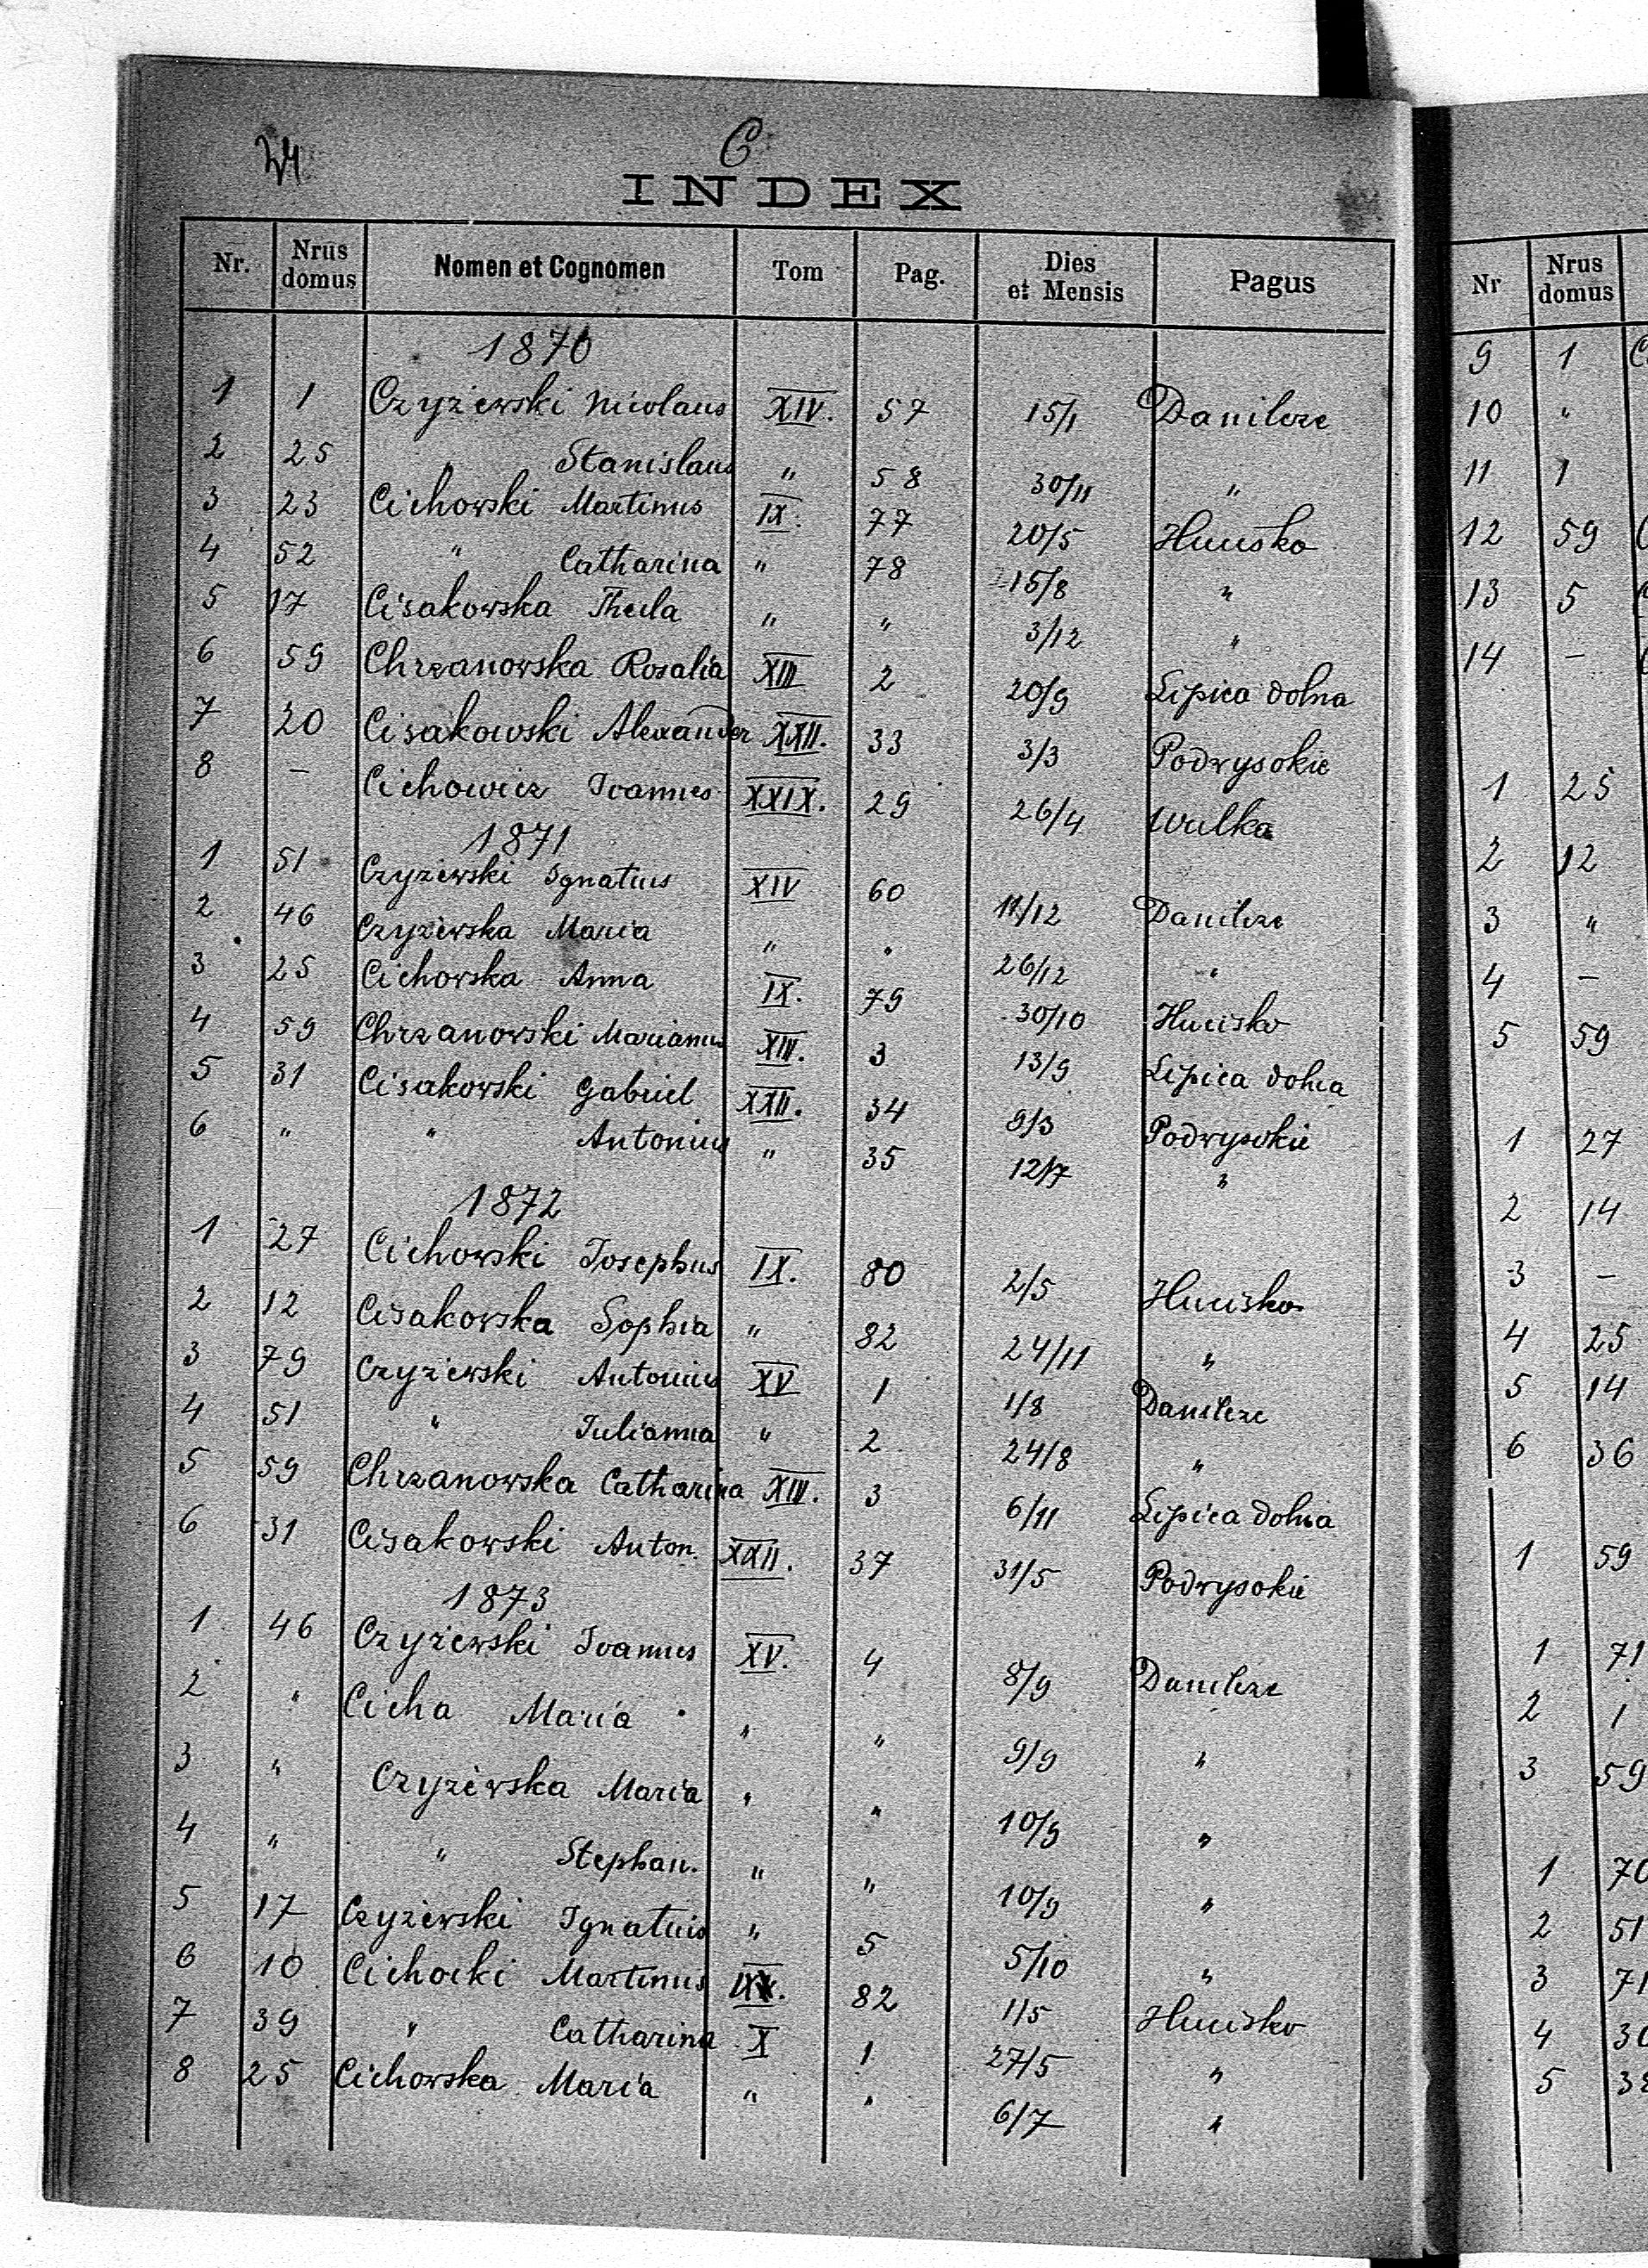 24
C
INDEX
Nr. Nrus domus Nomen et Cognomen Tom Pag. Dies et Mensis Pagus
1870
1 1 Czyżewski Nicolaus XIV. 57 15/1 Danilcze
2 25 " Stanislaus " 58 30/11 "
3 23 Cichowski Martinus IX. 77 20/5 Hucisko
4 52 " Catharina " 78 15/8 "
5 17 Cisakowska Thecla " " 3/12 "
6 59 Chrzanowska Rosalia XIII 2 20/9 Lipica dolna
7 20 Cisakowski Alexander XXII. 33 3/3 Podwysokie
8 – Cichowicz Ioannes XXIX. 29 26/4 Wulka
1871
1 51 Czyżewski Ignatius XIV 60 11/12 Danilcze
2 46 Czyżewska Maria " " 26/12 "
3 25 Cichowska Anna IX. 79 30/10 Hucisko
4 59 Chrzanowski Marianus XIII. 3 13/9 Lipica dolna
5 31 Cisakowski Gabriel XXII. 34 9/3 Podwysokie
6 " " Antonius " 35 12/7 "
1872
1 27 Cichowski Josephus IX. 80 2/5 Hucisko
2 12 Cisakowska Sophia " 82 24/11 "
3 79 Czyżewski Antonius XV 1 1/8 Danilcze
4 51 " Julianna " 2 24/8 "
5 59 Chrzanowska Catharina XIII. 3 6/11 Lipica dolna
6 31 Cisakowski Anton. XXII. 37 31/5 Podwysokie
1873
1 46 Czyżewski Ioannes XV. 4 8/9 Danilcze
2 " Cicha Maria " " 9/9 "
3 " Czyżewska Maria " " 10/9 "
4 " " Stephan. " " 10/9 "
5 17 Czyżewski Ignatius " 5 5/10 "
6 10 Cichocki Martinus IX. 82 1/5 Hucisko
7 39 " Catharina X 1 27/5 "
8 25 Cichowska Maria " " 6/7 "
Nr Nrus domus
9 1
10 "
11 1
12 59
13 5
14 –
1 25
2 12
3 "
4 –
5 59
1 27
2 14
3 –
4 25
5 14
6 36
1 59
1 71
2 1
3 59
1 70
2 51
3 71
4
5